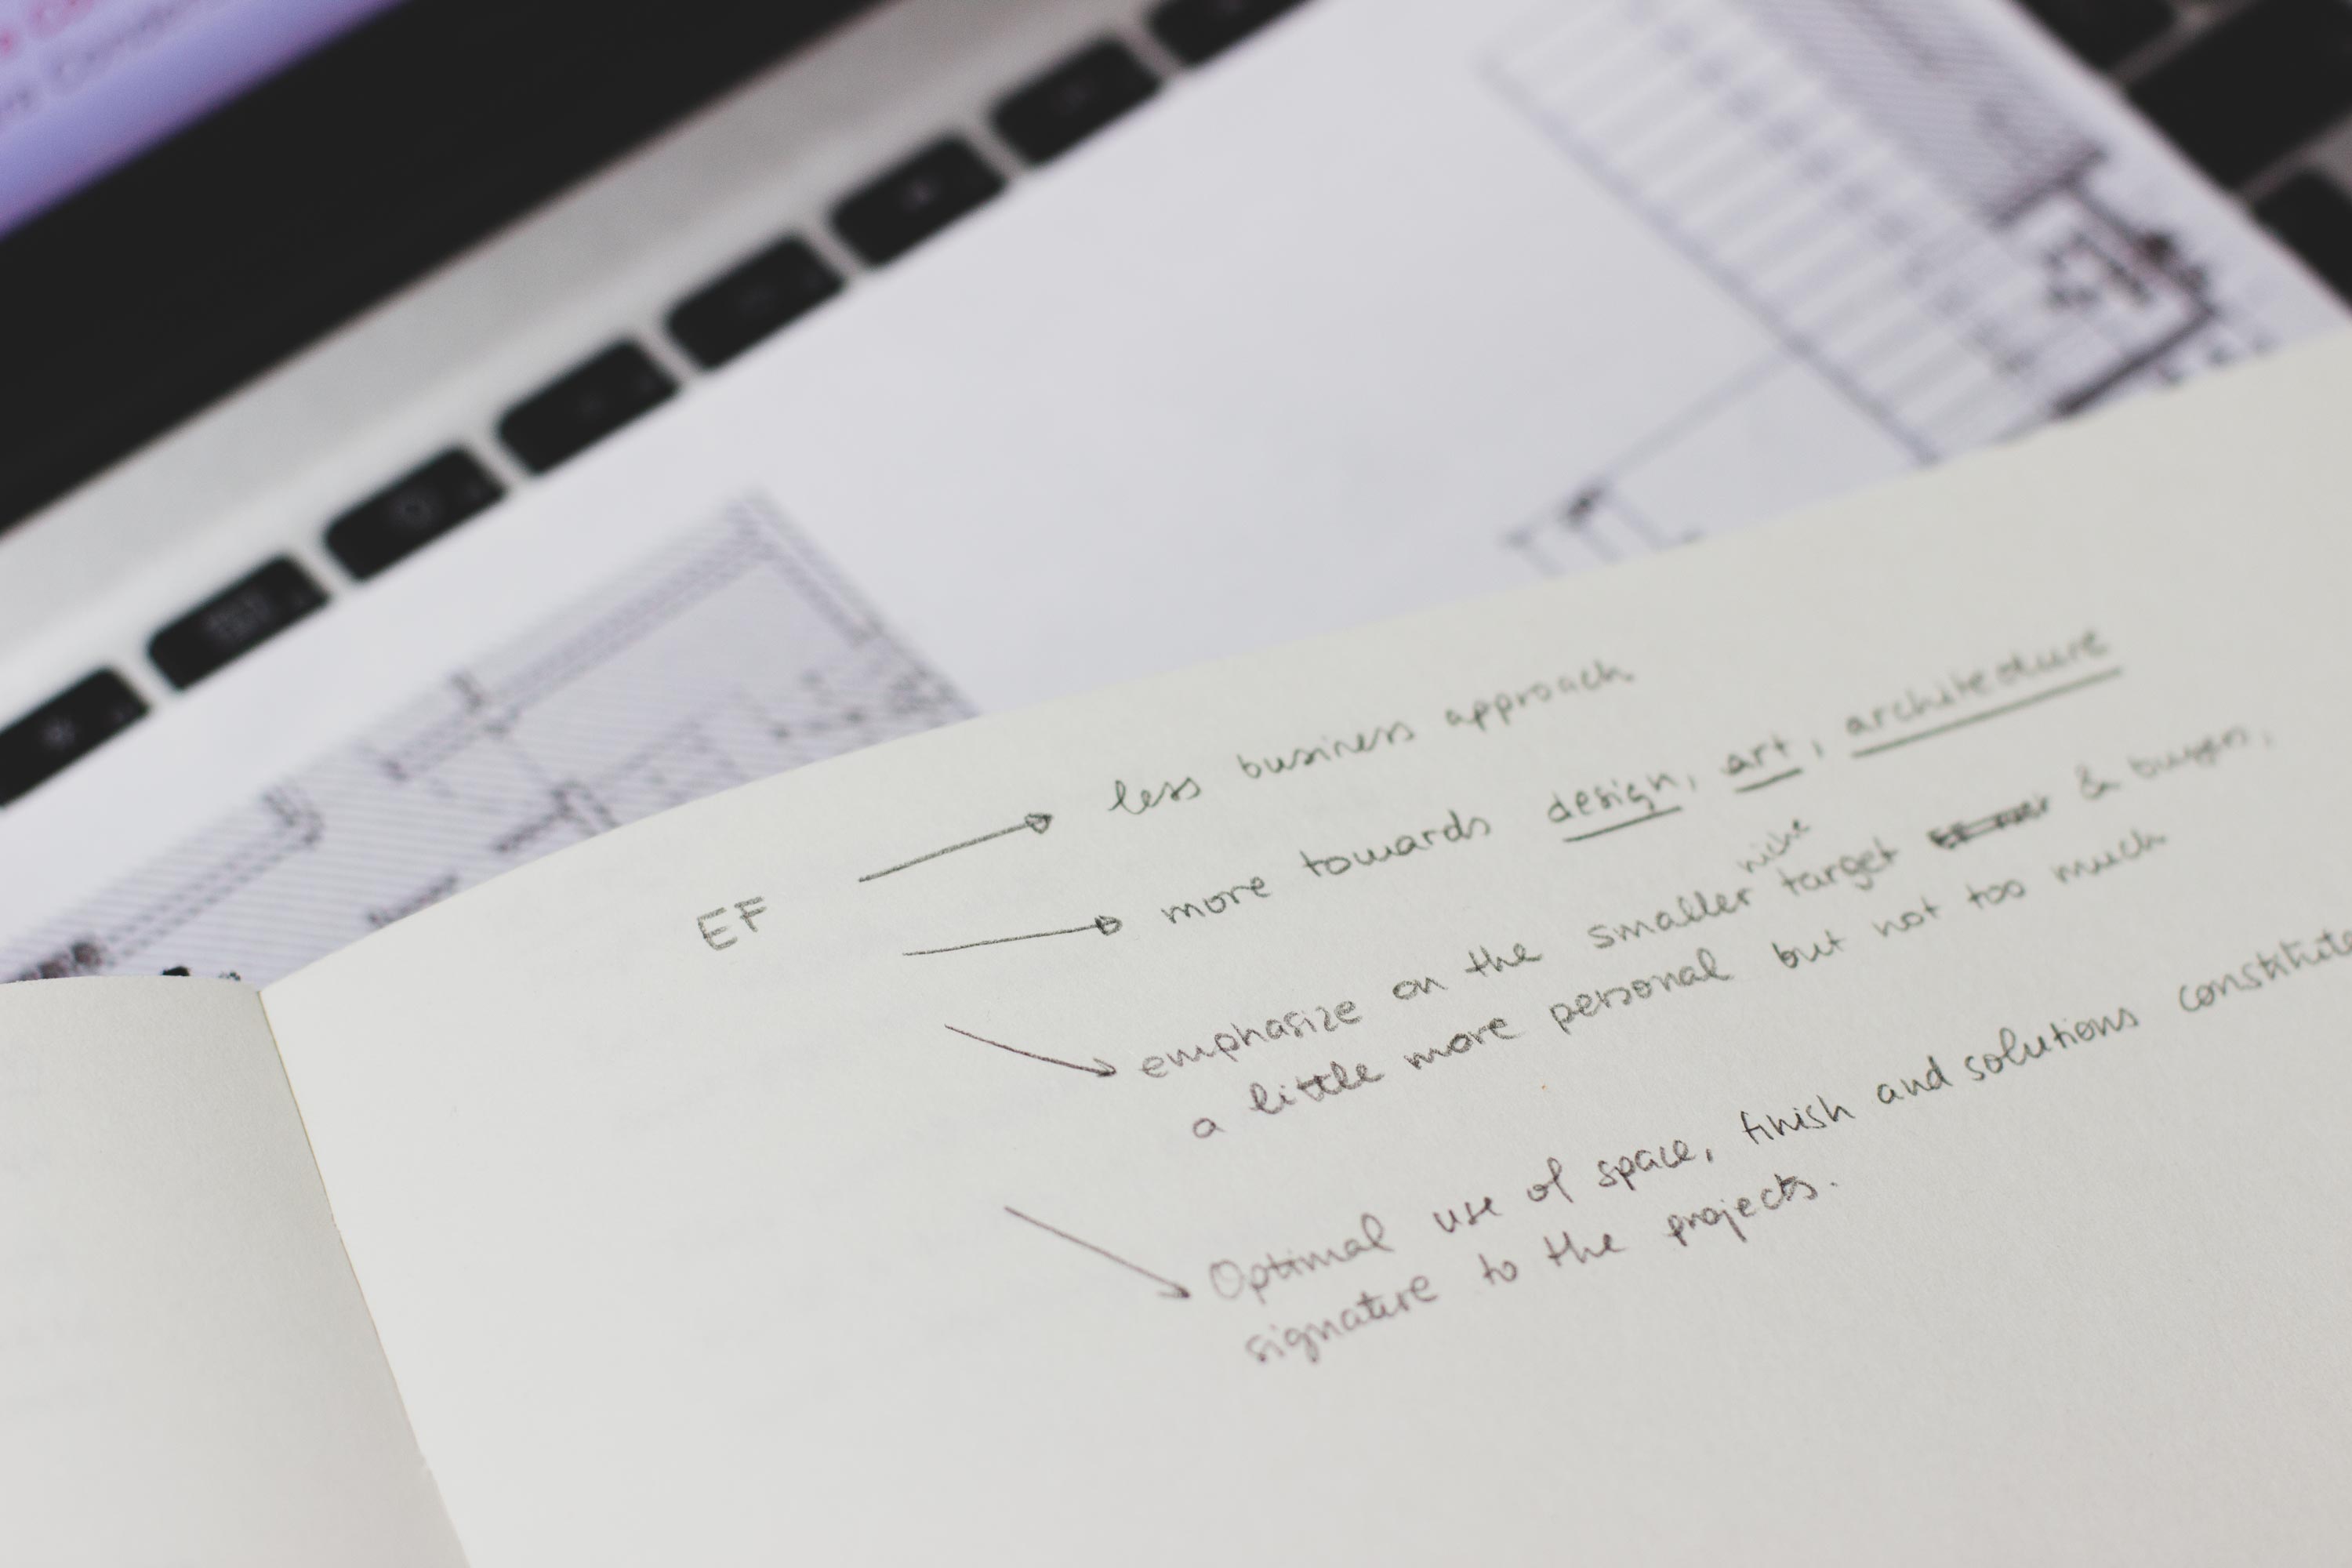 EF
less business approach
more towards design, art, architecture
niche
emphasize on the smaller target & buyers,
a little more personal but not too much
Optimal use of space, finish and solutions constitute
signature to the projects.